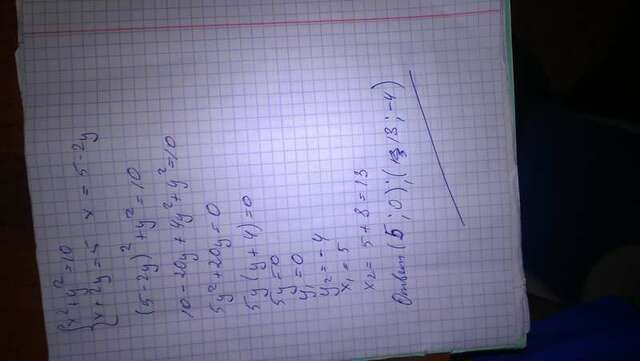 x²+y²=10
x+2y=5 x=5-2y
(5-2y)²+y²=10
10-20y+4y²+y²=10
5y²+20y=0
5y(y+4)=0
5y=0
y₁=0
y₂=-4
x₁=5
x₂=5+8=13
Ответ (5;0);(13;-4)